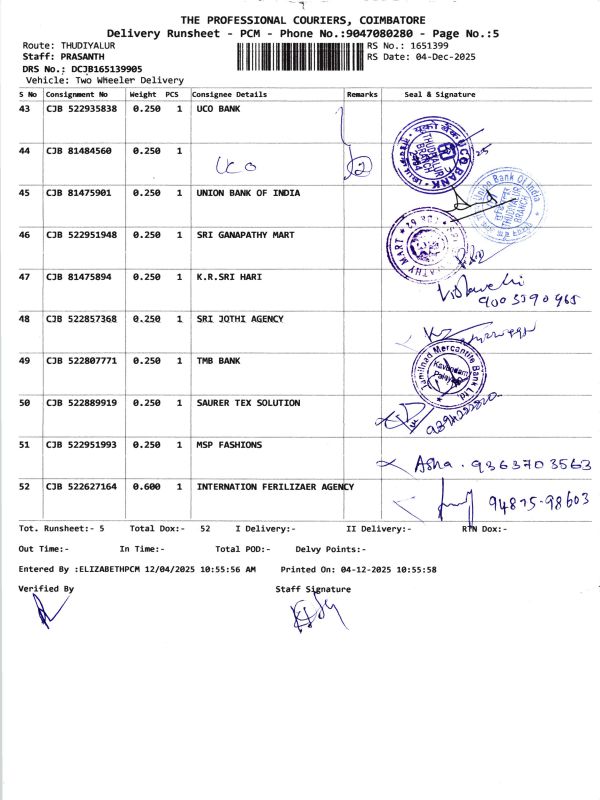 THE PROFESSIONAL COURIERS, COIMBATORE
Delivery Runsheet - PCM - Phone No.:9047080280 - Page No.:5
Route: THUDIYALUR RS No.: 1651399
Staff: PRASANTH RS Date: 04-Dec-2025
DRS No.: DCJB165139905
Vehicle: Two Wheeler Delivery
S No Consignment No Weight PCS Consignee Details Remarks Seal & Signature
43 CJB 522935838 0.250 1 UCO BANK
44 CJB 81484560 0.250 1 UCO 2
UCO BANK
THUDIYALUR
BRANCH
45 CJB 81475901 0.250 1 UNION BANK OF INDIA
Union Bank Of India
THUDIYALUR
BRANCH
46 CJB 522951948 0.250 1 SRI GANAPATHY MART
47 CJB 81475894 0.250 1 K.R.SRI HARI
900 3390 965
48 CJB 522857368 0.250 1 SRI JOTHI AGENCY
49 CJB 522807771 0.250 1 TMB BANK
Tamilnad Mercantile Bank Ltd.
50 CJB 522889919 0.250 1 SAURER TEX SOLUTION
51 CJB 522951993 0.250 1 MSP FASHIONS Asha. 9363703563
52 CJB 522627164 0.600 1 INTERNATION FERILIZAER AGENCY 94875-98603
Tot. Runsheet:- 5 Total Dox:- 52 I Delivery:- II Delivery:- RTN Dox:-
Out Time:- In Time:- Total POD:- Delvy Points:-
Entered By :ELIZABETHPCM 12/04/2025 10:55:56 AM Printed On: 04-12-2025 10:55:58
Verified By Staff Signature